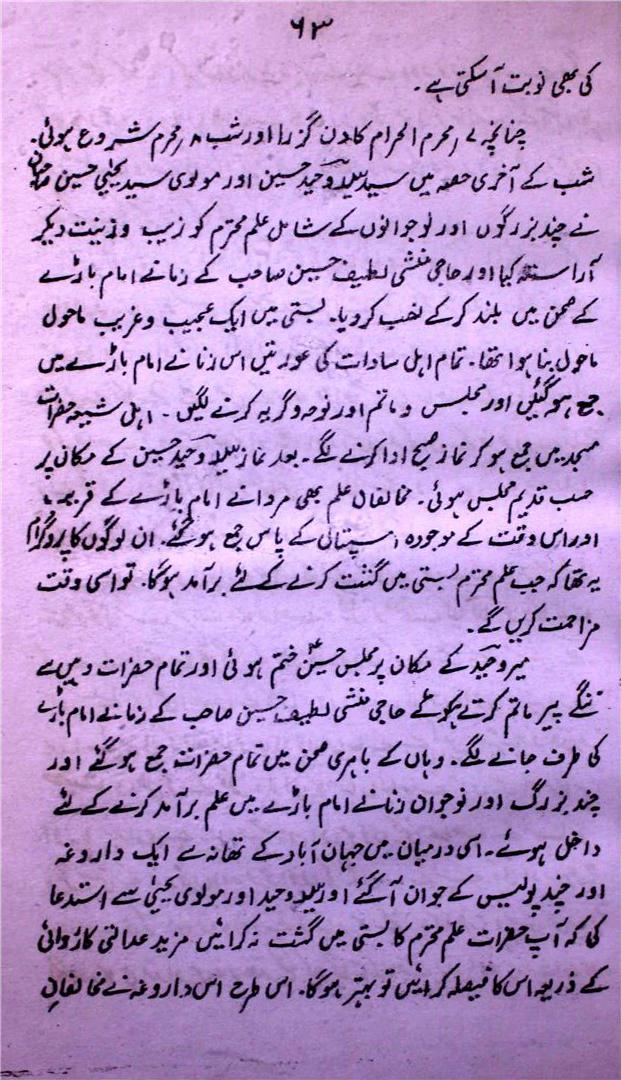 ۶۳
کی بھی نوبت آسکتی ہے۔
چنانچہ ۷ محرم الحرام کا دن گزرا اور شب ۸ محرم شروع ہوئی۔
شب کے آخری حصہ میں سید وحید حسین اور مولوی سید یحییٰ حسین صاحبان
نے چند بزرگوں اور نوجوانوں کے شامل علم محترم کو زیب و زینت دیکر
آراستہ کیا اور حاجی منشی لطیف حسین صاحب کے زنانے امام باڑے
کے صحن میں بلند کرکے نصب کردیا۔ بستی میں ایک عجیب و غریب ماحول
ماحول بنا ہوا تھا۔ تمام اہل سادات کی عورتیں اس زنانے امام باڑے میں
جمع ہوگئیں اور مجلس و ماتم اور نوحہ و گریہ کرنے لگیں۔ اہل شیعہ حضرات
مسجد میں جمع ہوکر نماز صبح ادا کرنے لگے۔ بعد نماز وحید حسین کے مکان پر
حسب قدیم مجلس ہوئی۔ مخالفان علم بھی مردانے امام باڑے کے قریب
اور اس وقت کے موجودہ اسپتال کے پاس جمع ہوگئے۔ ان لوگوں کا پروگرام
یہ تھا کہ جب علم محترم بستی میں گشت کرنے کے لئے برآمد ہوگا۔ تو اسی وقت
مزاحمت کریں گے۔
میر وحید کے مکان پر مجلس حسینؑ ختم ہوئی اور تمام حضرات وہیں سے
ننگے پیر ماتم کرتے ہوئے حاجی منشی لطیف حسین صاحب کے زنانے امام باڑے
کی طرف جانے لگے۔ وہاں کے باہری صحن میں تمام حضرات جمع ہوگئے اور
چند بزرگ اور نوجوان زنانے امام باڑے میں علم برآمد کرنے کے لئے
داخل ہوئے۔ اسی درمیان میں جہان آباد کے تھانہ سے ایک داروغہ
اور چند پولیس کے جوان آگئے اور وحید اور مولوی یحییٰ سے استدعا
کی کہ آپ حضرات علم محترم کا بستی میں گشت نہ کرائیں مزید عدالتی کاروائی
کے ذریعہ اس کا فیصلہ کرائیں تو بہتر ہوگا۔ اس طرح اس داروغہ نے مخالفان